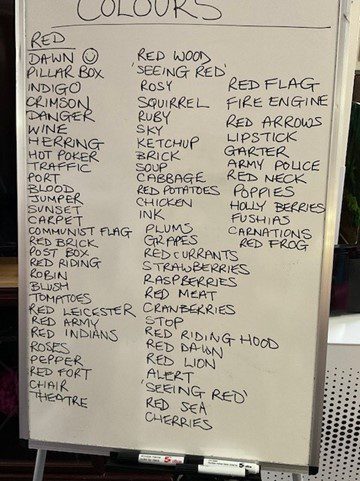 COLOURS
RED
DAWN ☺
PILLAR BOX
INDIGO
CRIMSON
DANGER
WINE
HERRING
HOT POKER
TRAFFIC
PORT
BLOOD
JUMPER
SUNSET
CARPET
COMMUNIST FLAG
RED BRICK
POST BOX
RED RIDING
ROBIN
BLUSH
TOMATOES
RED LEICESTER
RED ARMY
RED INDIANS
ROSES
PEPPER
RED FORT
CHAIR
THEATRE
RED WOOD
'SEEING RED'
ROSY
SQUIRREL
RUBY
SKY
KETCHUP
BRICK
SOUP
CABBAGE
RED POTATOES
CHICKEN
INK
PLUMS
GRAPES
RED CURRANTS
STRAWBERRIES
RASPBERRIES
RED MEAT
CRANBERRIES
STOP
RED RIDING HOOD
RED DAWN
RED LION
ALERT
'SEEING RED'
RED SEA
CHERRIES
RED FLAG
FIRE ENGINE
RED ARROWS
LIPSTICK
GARTER
ARMY POLICE
RED NECK
POPPIES
HOLLY BERRIES
FUSHIAS
CARNATIONS
RED FROG